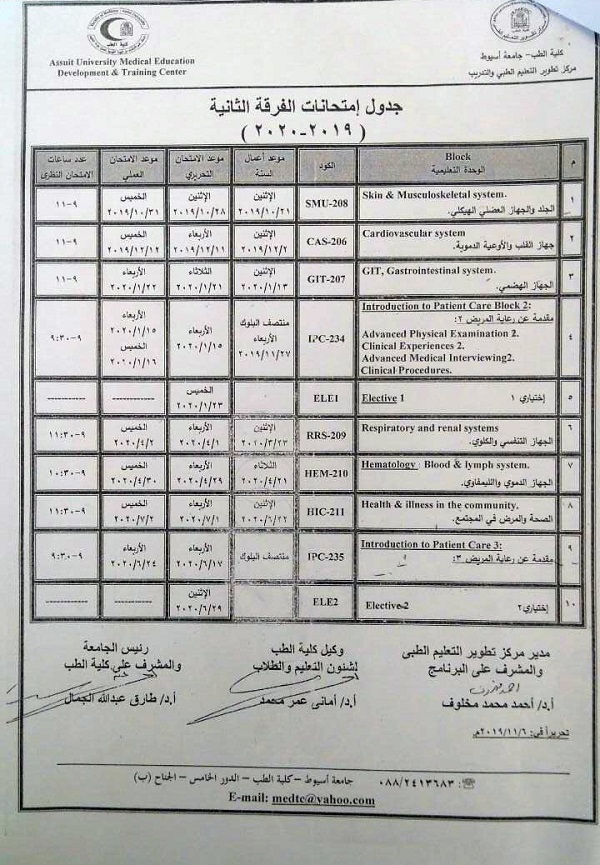 كلية الطب - جامعة أسيوط
مركز تطوير التعليم الطبي والتدريب
كلية الطب
Assuit University Medical Education
Development & Training Center
جدول إمتحانات الفرقة الثانية
(٢٠١٩-٢٠٢٠)
م
Block
الوحدة التعليمية
الكود
موعد أعمال السنة
موعد الامتحان التحريري
موعد الامتحان العملي
عدد ساعات الامتحان النظري
١
Skin & Musculoskeletal system.
الجلد والجهاز العضلي الهيكلي.
SMU-208
الإثنين ٢٠١٩/١٠/٢١
الإثنين ٢٠١٩/١٠/٢٨
الخميس ٢٠١٩/١٠/٣١
٩-١١
٢
Cardiovascular system
جهاز القلب والأوعية الدموية.
CAS-206
الإثنين ٢٠١٩/١٢/٢
الأربعاء ٢٠١٩/١٢/١١
الخميس ٢٠١٩/١٢/١٢
٩-١١
٣
GIT, Gastrointestinal system.
الجهاز الهضمي.
GIT-207
الإثنين ٢٠٢٠/١/١٣
الثلاثاء ٢٠٢٠/١/٢١
الأربعاء ٢٠٢٠/١/٢٢
٩-١١
٤
Introduction to Patient Care Block 2:
مقدمة عن رعاية المريض ٢:
Advanced Physical Examination 2.
Clinical Experiences 2.
Advanced Medical Interviewing2.
Clinical Procedures.
IPC-234
منتصف البلوك
الأربعاء
٢٠١٩/١١/٢٧
الأربعاء
٢٠٢٠/١/١٥
الأربعاء
٢٠٢٠/١/١٥
الخميس
٢٠٢٠/١/١٦
٩-٩:٣٠
٥
Elective 1
إختياري ١
ELE1
الخميس
٢٠٢٠/١/٢٣
-----------
-----------
٦
Respiratory and renal systems
الجهاز التنفسي والكلوي.
RRS-209
الإثنين ٢٠٢٠/٣/٢٣
الأربعاء ٢٠٢٠/٤/١
الخميس ٢٠٢٠/٤/٢
٩-١١:٣٠
٧
Hematology : Blood & lymph system.
الجهاز الدموي والليمفاوي.
HEM-210
الثلاثاء ٢٠٢٠/٤/٢١
الأربعاء ٢٠٢٠/٤/٢٩
الخميس ٢٠٢٠/٤/٣٠
٩-١٠:٣٠
٨
Health & illness in the community.
الصحة والمرض في المجتمع.
HIC-211
الإثنين ٢٠٢٠/٦/٢٢
الأربعاء ٢٠٢٠/٧/١
الخميس ٢٠٢٠/٧/٢
٩-١١:٣٠
٩
Introduction to Patient Care 3:
مقدمة عن رعاية المريض ٣:
IPC-235
منتصف البلوك
الأربعاء
٢٠٢٠/٦/١٧
الأربعاء
٢٠٢٠/٦/٢٤
٩-٩:٣٠
١٠
Elective 2
إختياري ٢
ELE2
الإثنين
٢٠٢٠/٦/٢٩
-----------
-----------
مدير مركز تطوير التعليم الطبى
والمشرف على البرنامج
أ.د/ أحمد محمد مخلوف
وكيل كلية الطب
لشئون التعليم والطلاب
أ.د/ أمانى عمر محمد
رئيس الجامعة
والمشرف على كلية الطب
أ.د/ طارق عبدالله الجمال
تحريراً في: ٢٠١٩/١١/٦م
جامعة أسيوط - كلية الطب - الدور الخامس - الجناح (ب) ☎: ٠٨٨/٢٤١٣٦٨٣
E-mail: medtc@yahoo.com